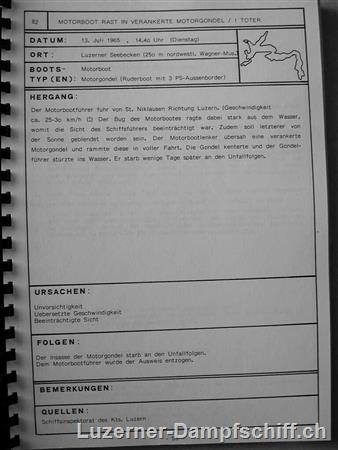 82 MOTORBOOT RAST IN VERANKERTE MOTORGONDEL / 1 TOTER
DATUM: 13. Juli 1965 , 14.4o Uhr (Dienstag)
ORT: Luzerner Seebecken (25o m nordwestl. Wagner-Mus.
BOOTS- Motorboot
TYP(EN): Motorgondel (Ruderboot mit 3 PS-Aussenborder)
HERGANG:
Der Motorbootführer fuhr von St. Niklausen Richtung Luzern. (Geschwindigkeit
ca. 25-3o km/h (!) Der Bug des Motorbootes ragte dabei stark aus dem Wasser,
womit die Sicht des Schiffsführers beeinträchtigt war. Zudem soll letzterer von
der Sonne geblendet worden sein. Der Motorbootlenker übersah eine verankerte
Motorgondel und rammte diese in voller Fahrt. Die Gondel kenterte und der Gondel-
führer stürzte ins Wasser. Er starb wenige Tage später an den Unfallfolgen.
URSACHEN:
Unvorsichtigkeit
Uebersetzte Geschwindigkeit
Beeinträchtigte Sicht
FOLGEN:
Der Insasse der Motorgondel starb an den Unfallfolgen.
Dem Motorbootführer wurde der Ausweis entzogen.
BEMERKUNGEN:
QUELLEN:
Schiffsinspektorat des Kts. Luzern
Luzerner-Dampfschiff.ch